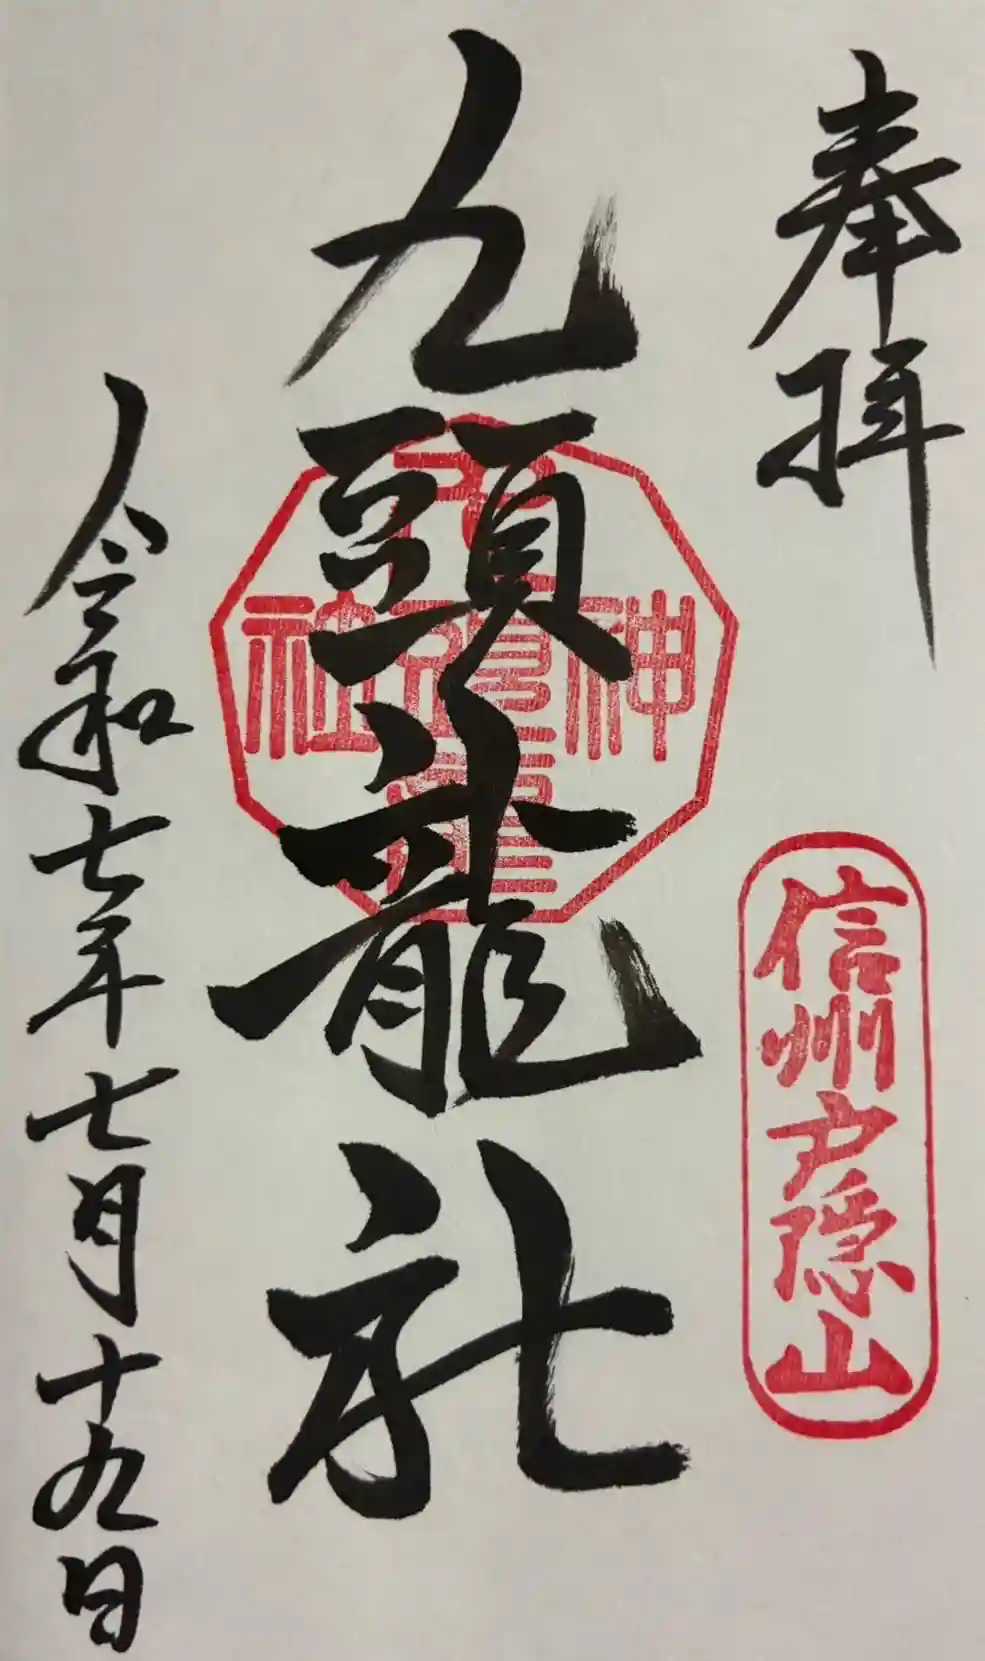 奉拝
信州戸隠山
九頭龍社
神
社
令和七年七月十九日